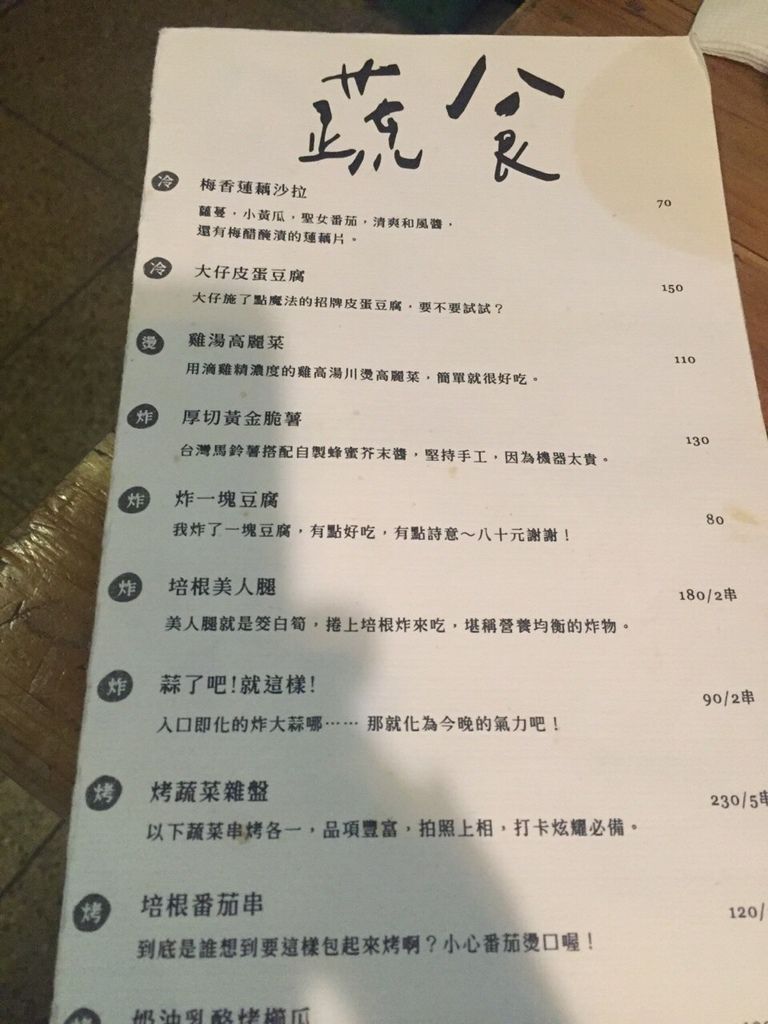 蔬食
冷 梅香蓮藕沙拉 70
蘿蔓，小黃瓜，聖女番茄，清爽和風醬，
還有梅醋醃漬的蓮藕片。
冷 大仔皮蛋豆腐 150
大仔施了點魔法的招牌皮蛋豆腐，要不要試試？
燙 雞湯高麗菜 110
用滴雞精濃度的雞高湯川燙高麗菜，簡單就很好吃。
炸 厚切黃金脆薯 130
台灣馬鈴薯搭配自製蜂蜜芥末醬，堅持手工，因為機器太貴。
炸 炸一塊豆腐 80
我炸了一塊豆腐，有點好吃，有點詩意～八十元謝謝！
炸 培根美人腿 180/2串
美人腿就是筊白筍，捲上培根炸來吃，堪稱營養均衡的炸物。
炸 蒜了吧！就這樣！ 90/2串
入口即化的炸大蒜哪⋯⋯ 那就化為今晚的氣力吧！
烤 烤蔬菜雜盤 230/5串
以下蔬菜串烤各一，品項豐富，拍照上相，打卡炫耀必備。
烤 培根番茄串 120/
到底是誰想到要這樣包起來烤啊？小心番茄燙口喔！
烤 奶油乳酪烤櫛瓜